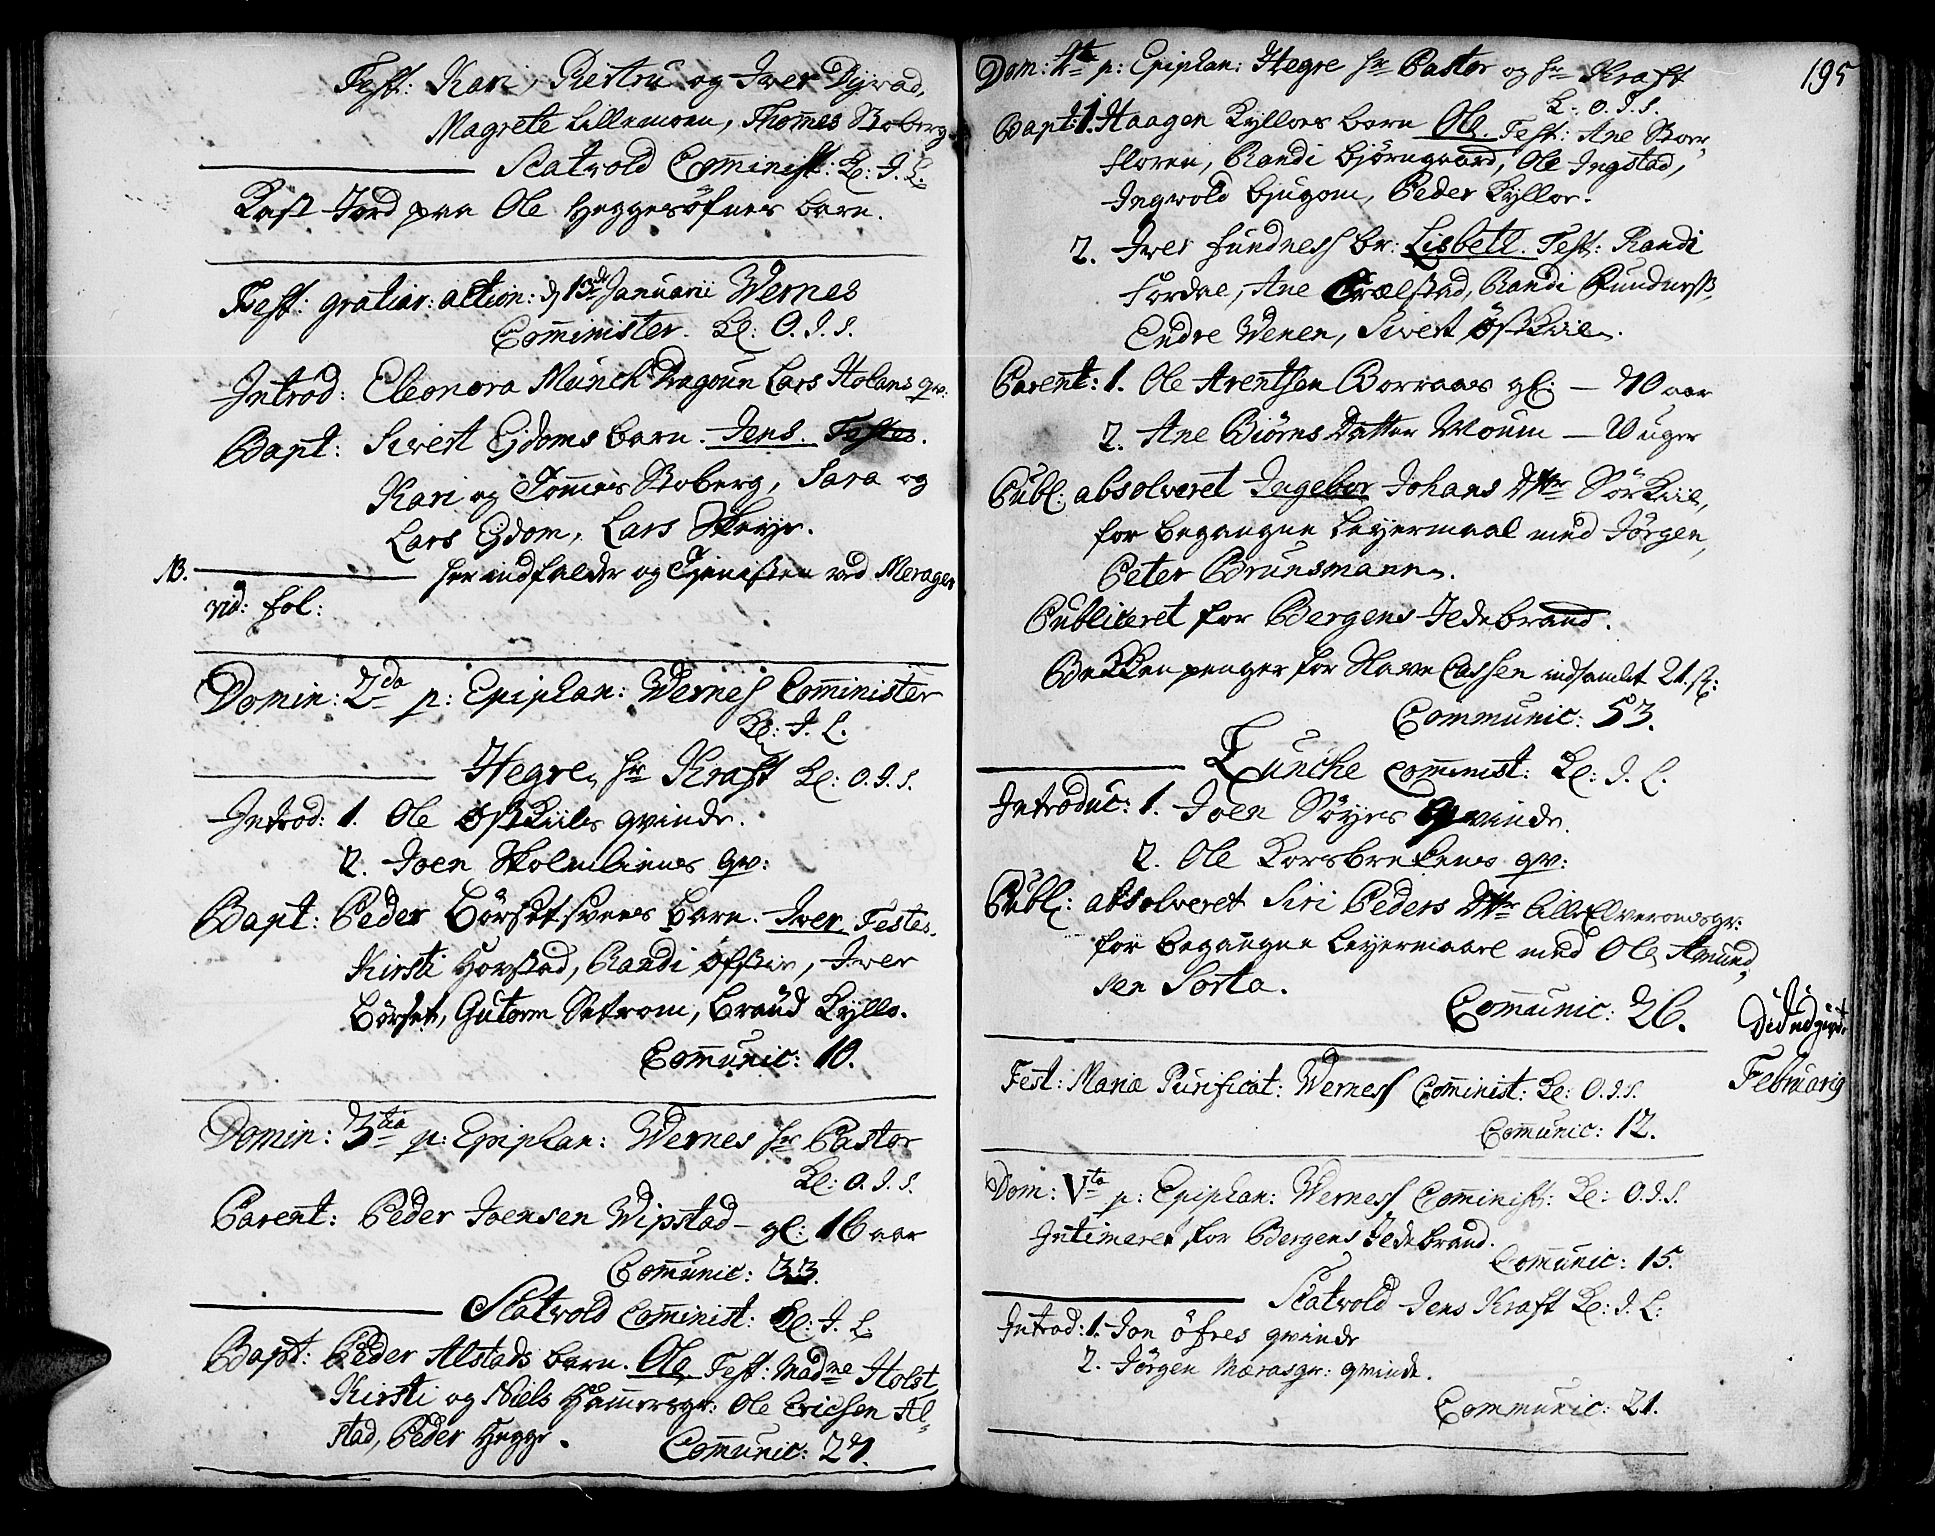 Test: Kari, Kirstru og Iver Dyvad,
Magrete Lillemoen, Thom̅es Skoberg
Scatvold Com̅inist: Kl: I. L.
Kast Jord paa Ole Heggesöfnes barn.
Fest: gratiar: action: d 13de Januarii Wernes
Com̅inister. Kl: O. I. S.
Introd: Eleonora Münch Dragoun Lars Holans qv:
Bapt: Sivert Eidoms barn. Jens. Testes.
Kari og Tom̅es Skoberg, Sara og
Lars Eidom, Lars Skeye.
NB. her indfalder og Tienesten ved Merager
vid: fol:
Domin: 2da p: Epiphan: Werness Com̅inister
Kl: I. L.
Hegre, hr Kraft Kl: O. I. S.
Introd: 1. Ole Öfstkiils qvinde.
2. Joen Skolmliens qv:
Bapt: Peder Börsetsvens barn. Iver Testes.
Kirsti Hovstad, Randi Öfstie, Iver
Börset, Gutorm Setrom, Braüd Kyllo.
Com̅unic: 10.
Domin: 3tia p: Epiphan: Wernes hr Pastor
Kl: O. I. S.
Parent: Peder Joensen Wipstad - gl: 16 aar
Com̅unic: 33.
Scatvold Com̅inist: Kl: I. L
Bapt: Peder Alstads barn. Ole Test: Madme Holst,
Kirsti og Niels Ham̅ersgr: Ole Erichsen Al-
stad, Peder Hegge. Com̅unic: 27.
195
Dom: 4ta p: Epiphan: Hegre hr Pastor og hr Kraft
Kl: O. I. S.
Bapt: 1. Haagen Kylloes barn Ole. Test: Ane Skor-
floren, Randi Bjørngaard, Ole Ingstad,
Ingvold Bjugom, Peder Kyllo.
2. Iver Fundness br: Lisbeth. Test: Randi
Fordal, Ane Trælstad, Randi Funderss,
Endre Wenen, Sivert Öfstkiil.
Parent: 1. Ole Arentsen Borraas gl: — 70 aar
2. Ane Biörns Datter Moum — 10 uger
Publ: absolveret Ingebor Johans Dttr Sörkiil,
for begangne Leyermaal med Jörgen
Peter Brunsmann.
Publiceret for Bergens Ildebrand.
Bekken penger for Slave Cassen indsamlet 21. sk:
Communic: 53.
Lunche Com̅inist: Kl: I. L.
Introduc: 1. Joen Söyes qvinde.
2. Ole Korsbrekens qv:
Publ: absolveret Siri Peders Dttr Lille Elveransgr:
for begangne Leyermaal med Ole Amund-
sen Sorta.
Com̅unic: 26.
Did udgivet
Februarij
Fest: Mariæ Purificat: Werness Com̅inist: Kl: O. I. S.
Com̅unic: 12.
Dom: Vta p: Epiphan: Werness Com̅inist: Kl: O. I. S.
Intimeret for Bergens Ildebrand.
Com̅unic: 15.
Scatvold Jens Kraft Kl: I. L:
Introd: 1. Jon Öfres qvinde
2. Jörgen Mærasgr: qvinde.
Communic: 21.